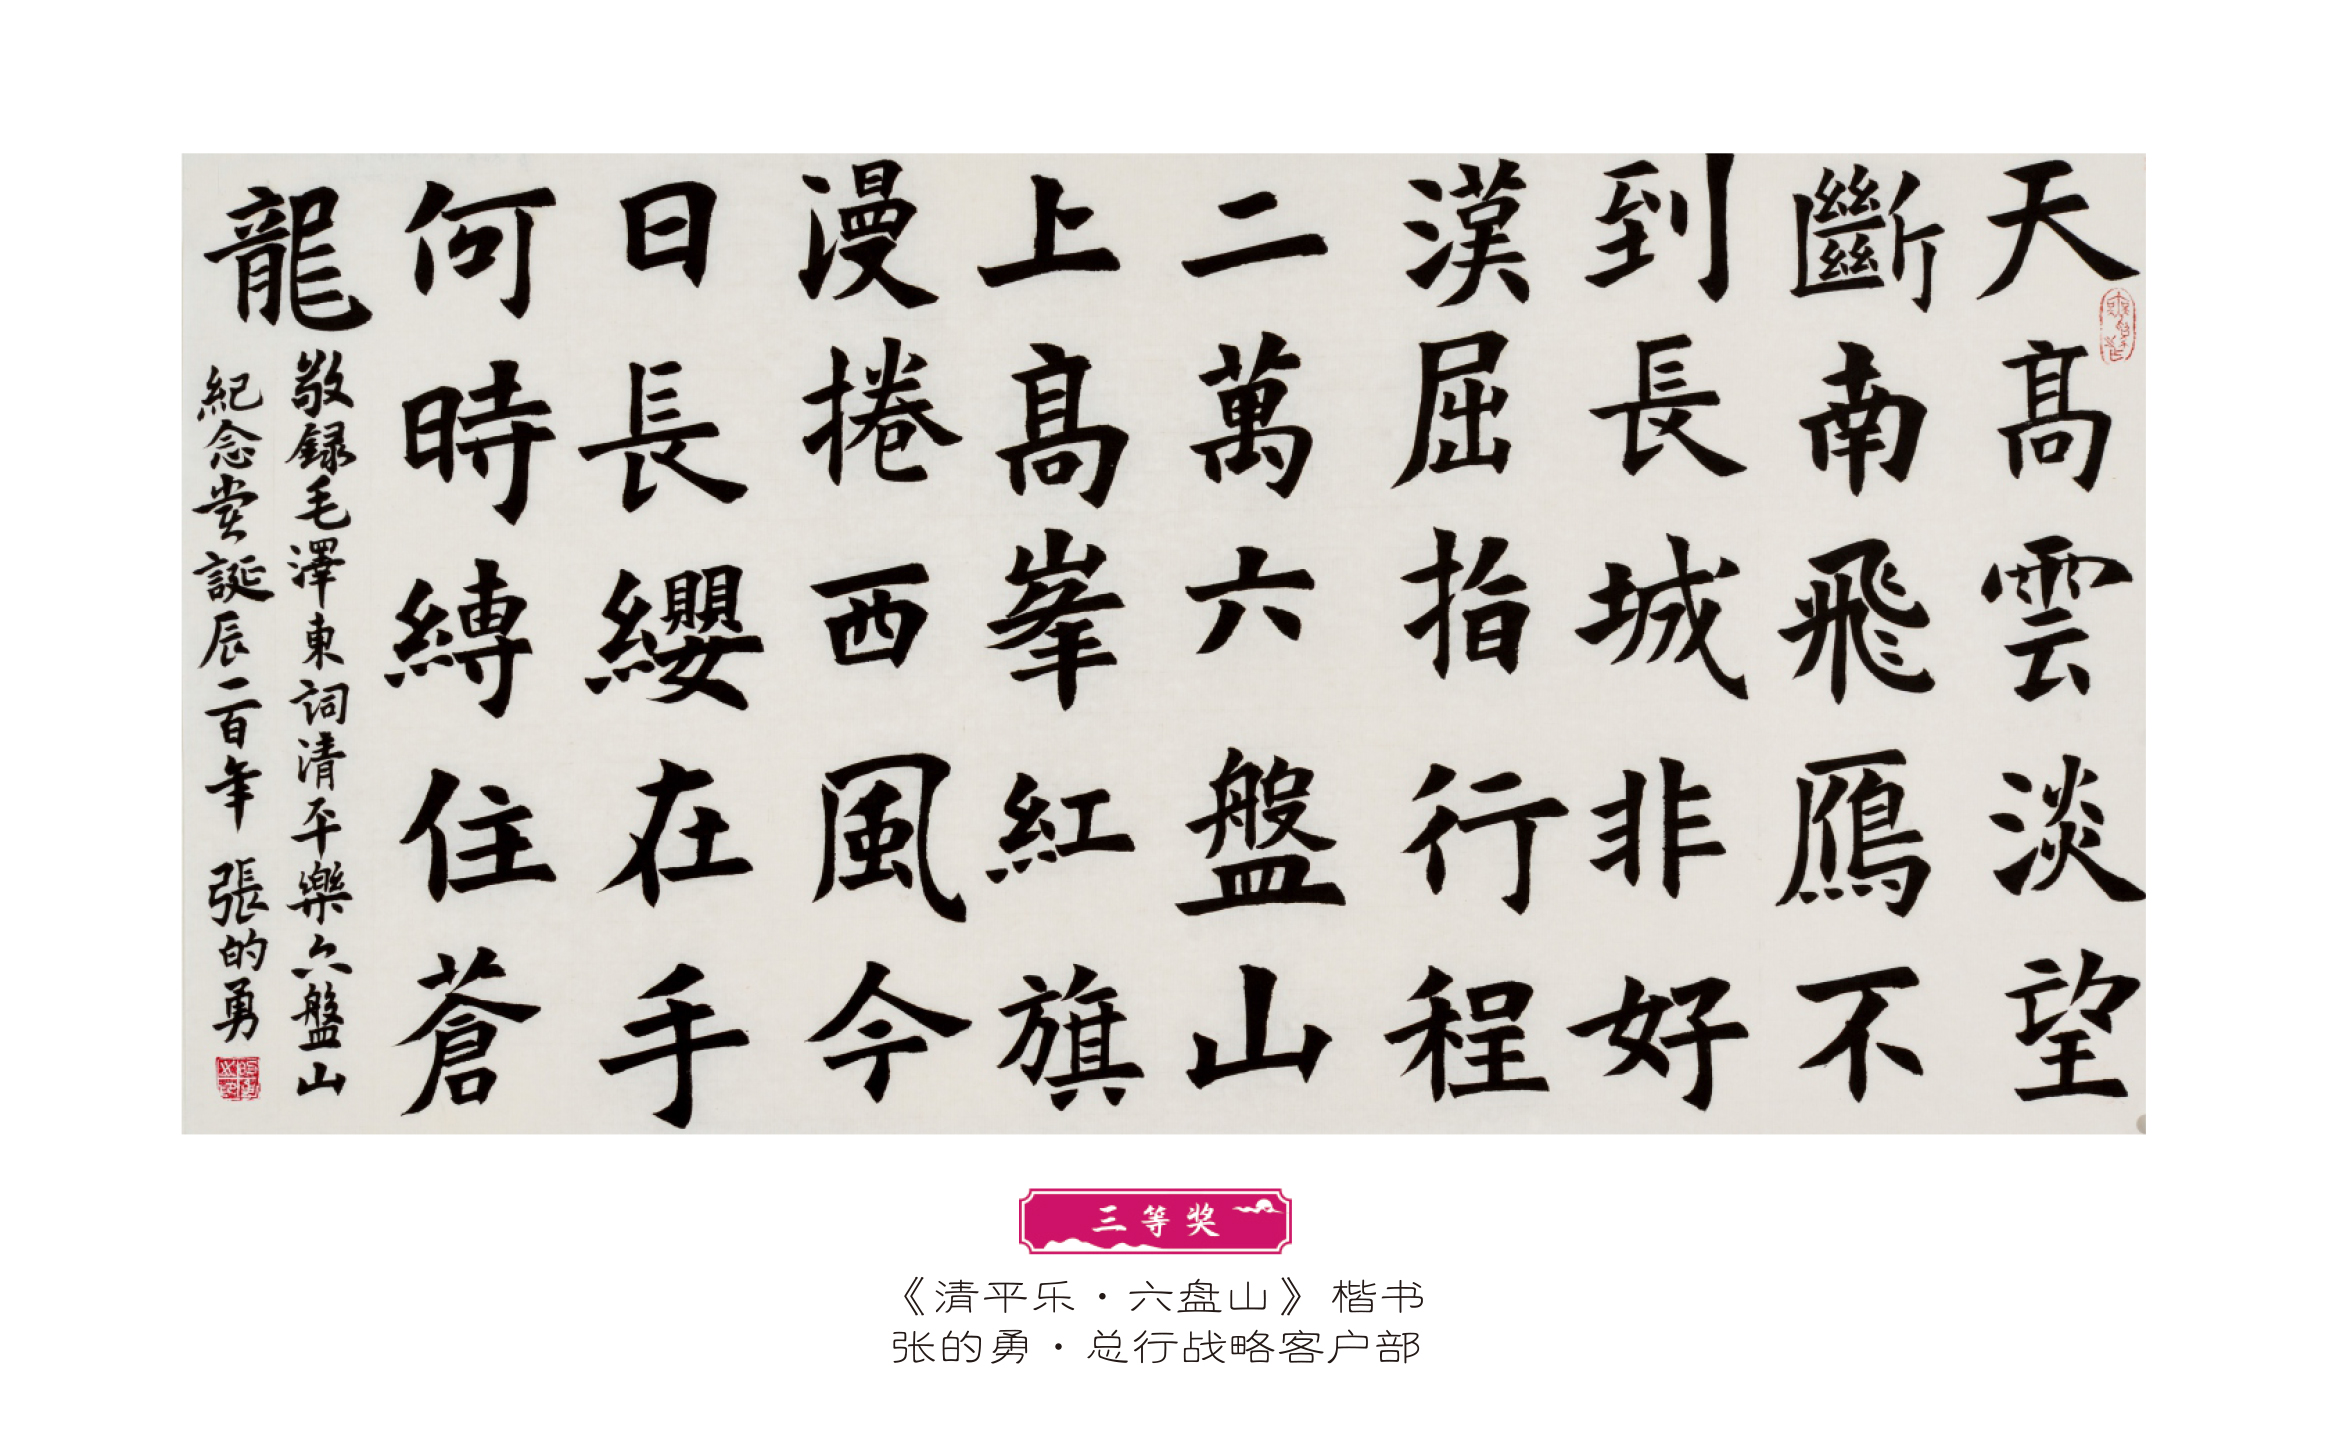 天髙雲淡望
斷南飛鴈不
到長城非好
漢屈指行程
二萬六盤山
上髙峯紅旗
漫捲西風今
日長纓在手
何時縛住蒼
龍
敬録毛澤東詞清平樂六盤山
紀念党誕辰一百年 張的勇
三等奖
《清平乐·六盘山》楷书
张的勇·总行战略客户部